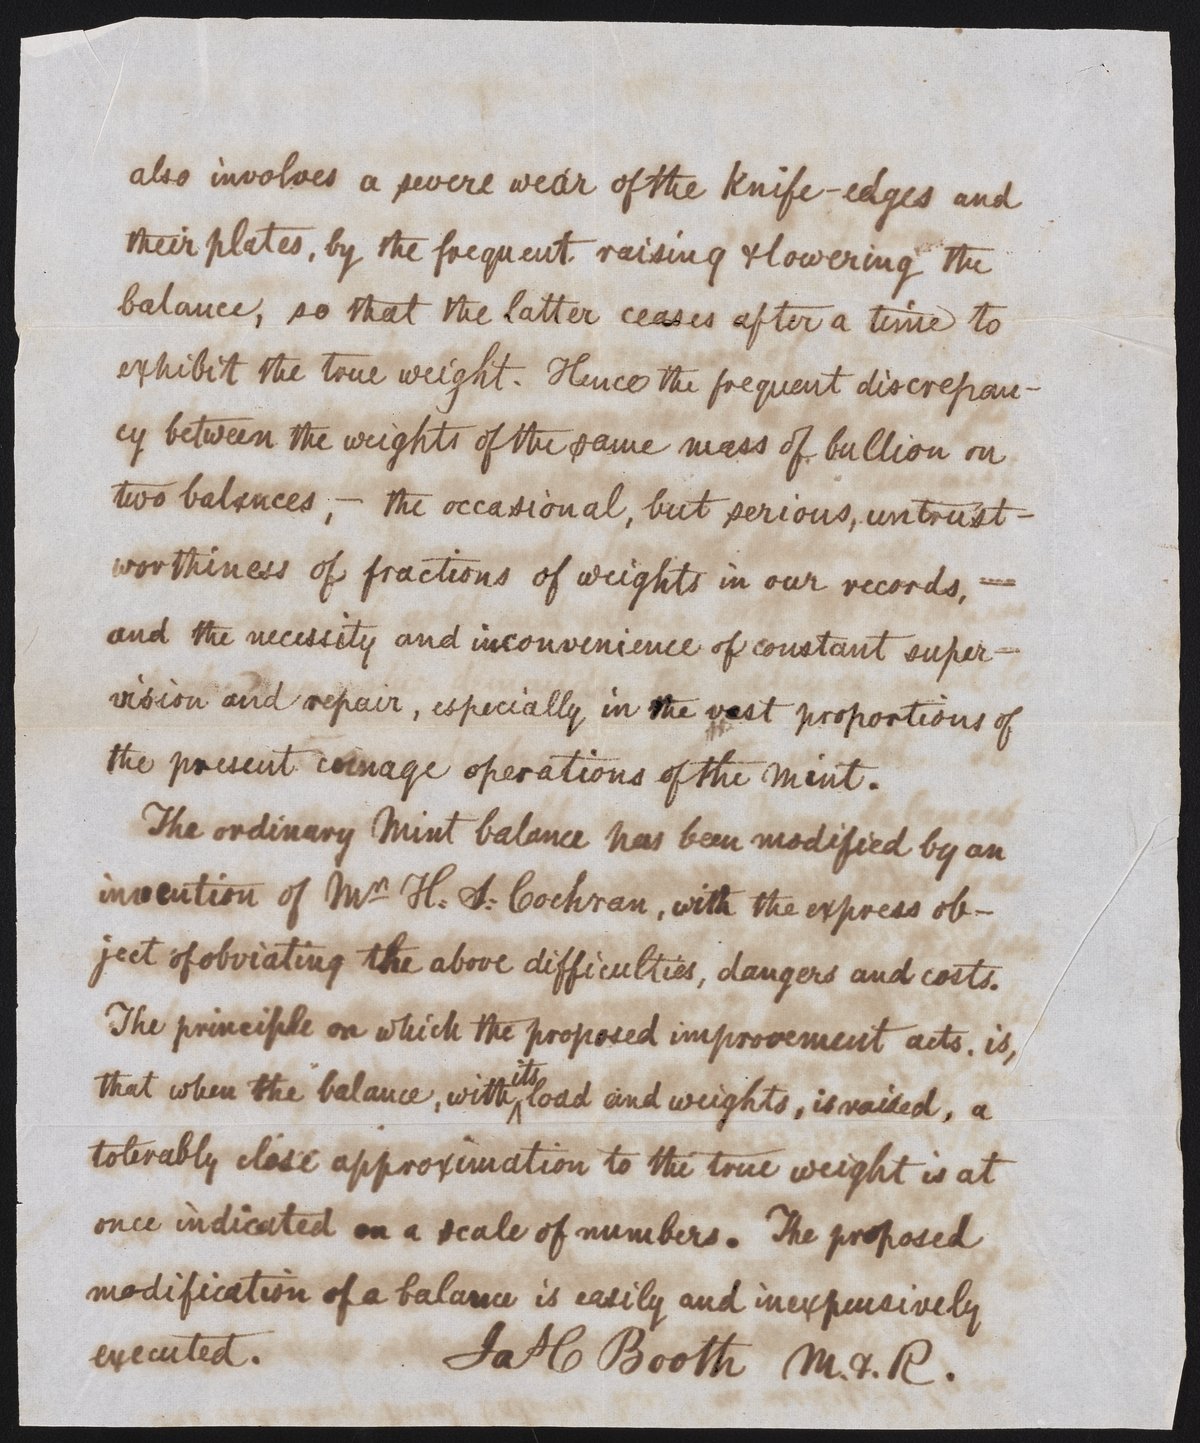 also involves a severe wear of the knife-edges and
their plates, by the frequent raising & lowering the
balance, so that the latter ceases after a time to
exhibit the true weight. Hence the frequent discrepan-
cy between the weights of the same mass of bullion on
two balances, — the occasional, but serious, untrust-
worthiness of fractions of weights in our records, —
and the necessity and inconvenience of constant super-
vision and repair, especially in the vast proportions of
the present coinage operations of the Mint.
The ordinary Mint balance has been modified by an
invention of Mr H. S. Cochran, with the express ob-
ject of obviating the above difficulties, dangers and costs.
The principle on which the proposed improvement acts, is,
that when the balance, with its load and weights, is raised, a
tolerably close approximation to the true weight is at
once indicated on a scale of numbers. The proposed
modification of a balance is easily and inexpensively
executed. Ja H C Booth M. & R.